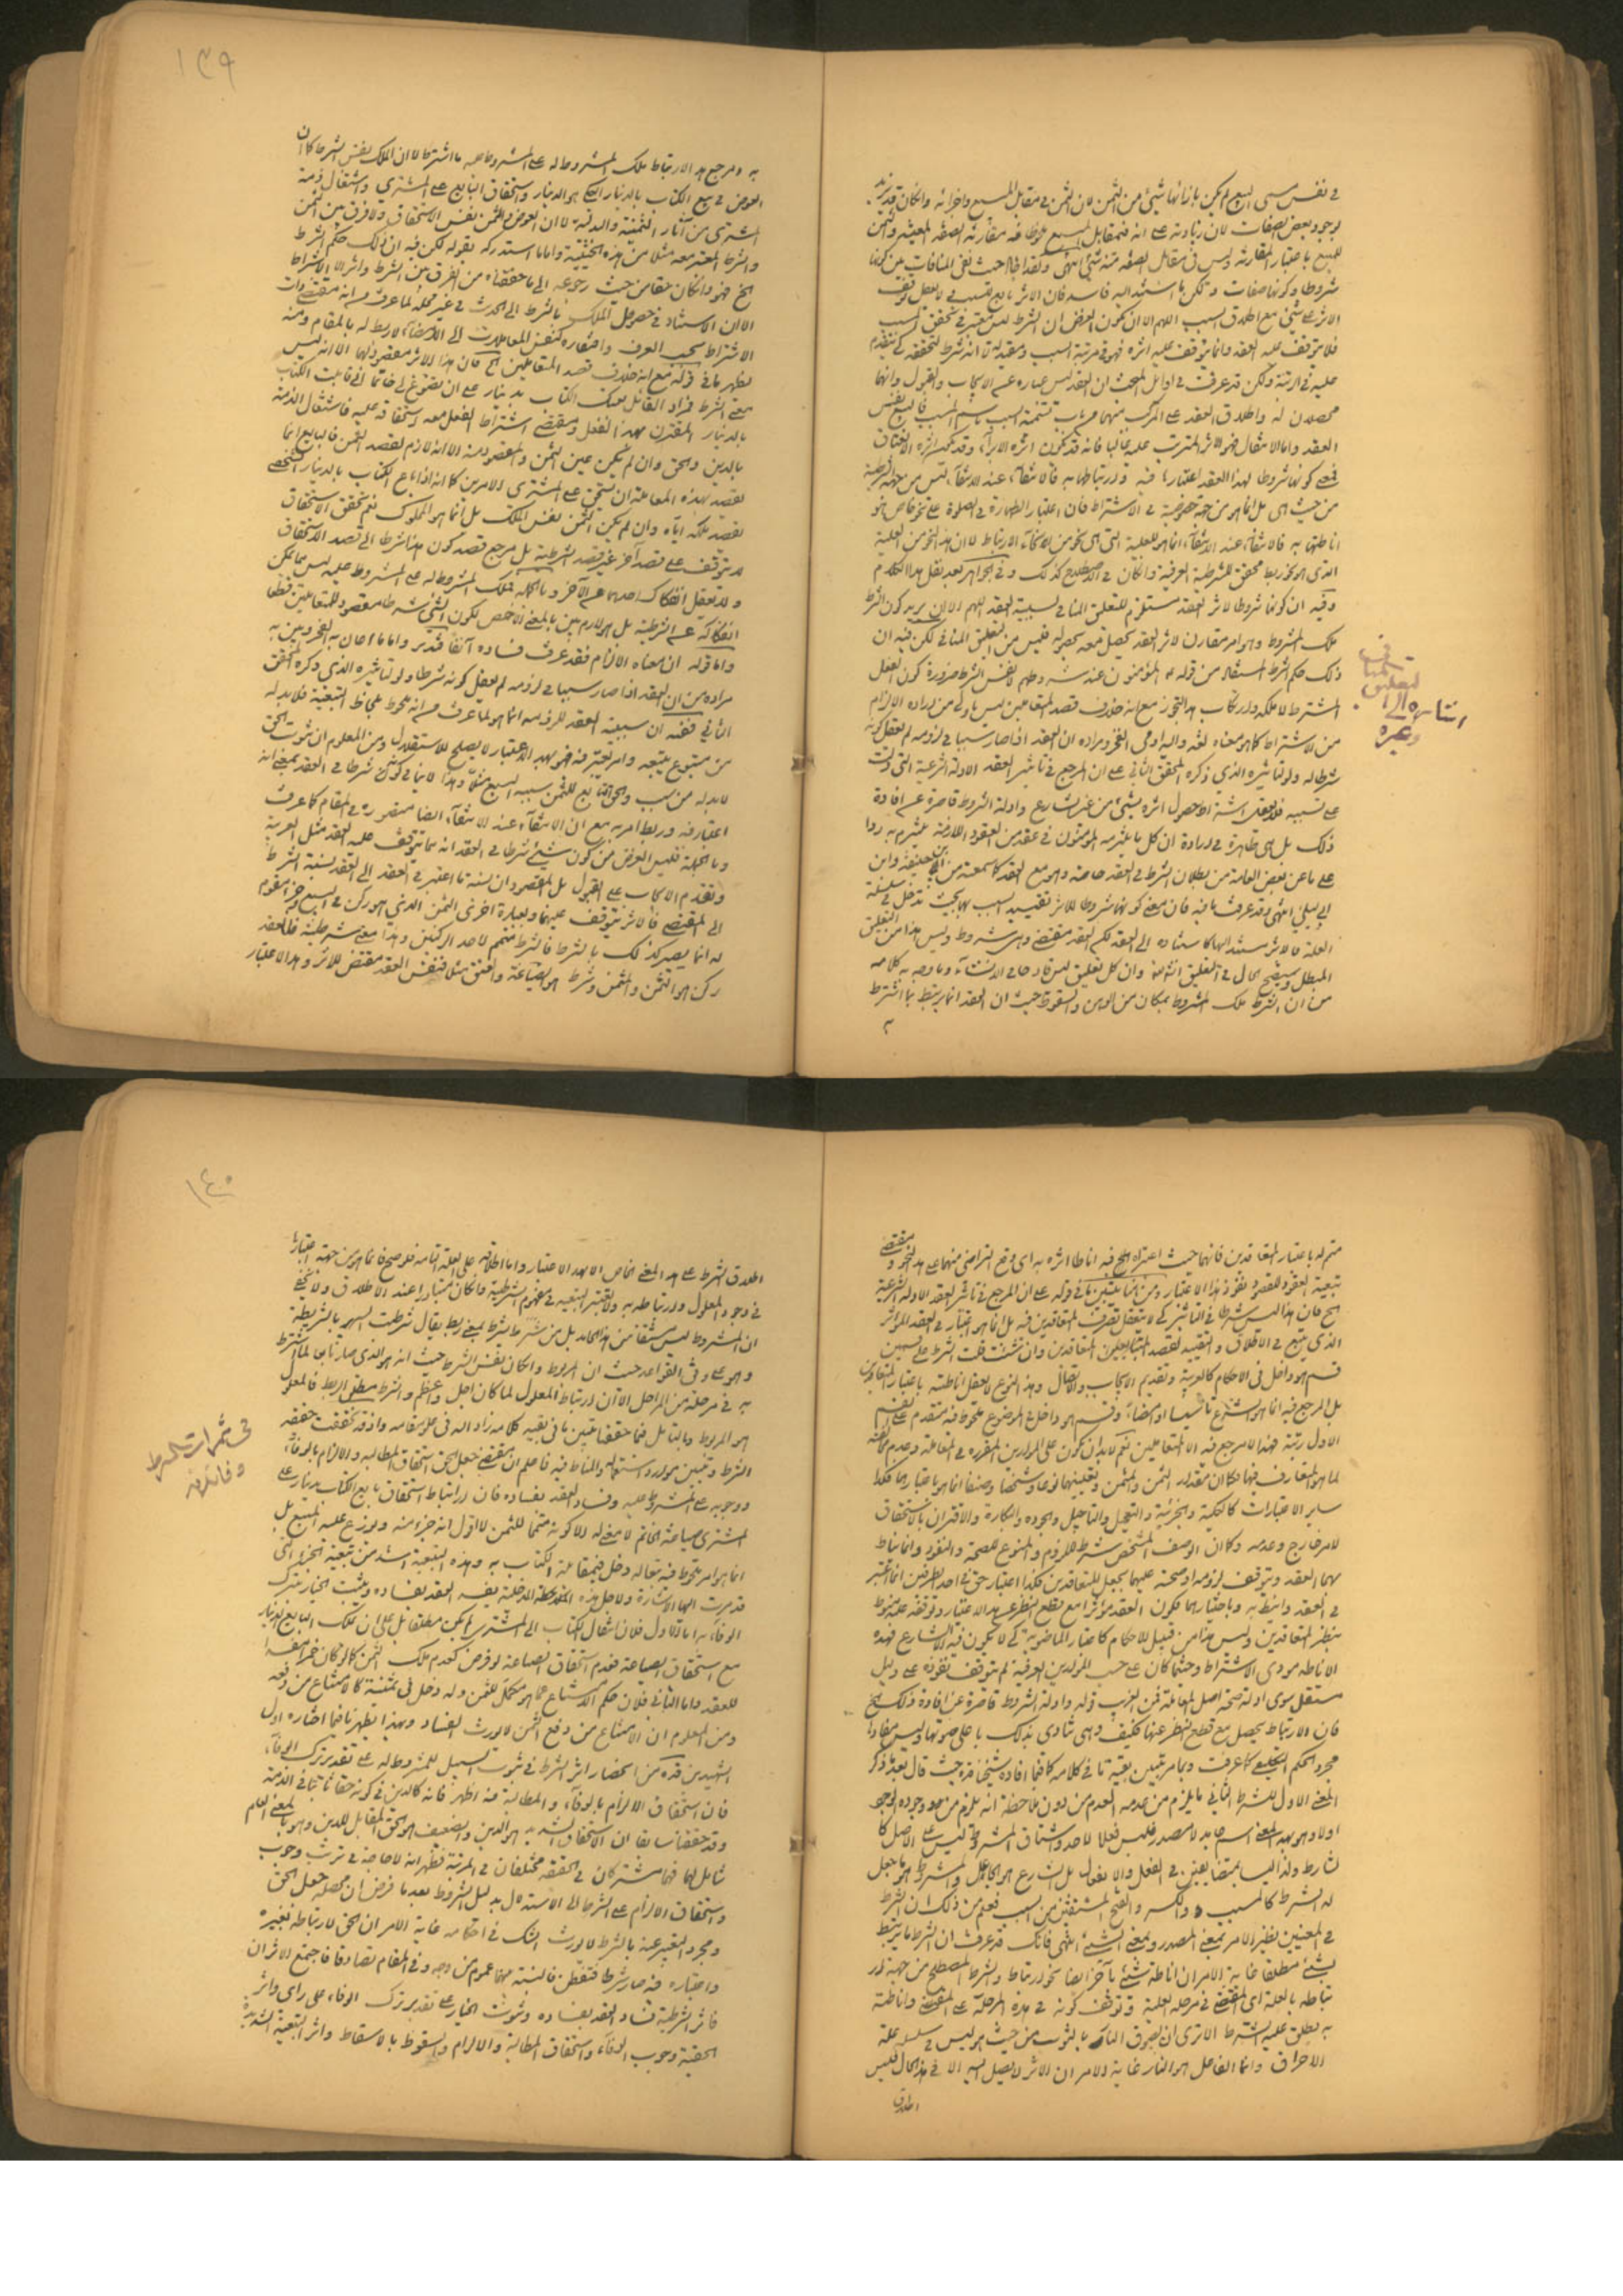 في نفس مسمى البيع لم يكن بازائها شيئ من الثمن لان الثمن في مقابل المبيع واجزائه وانكان قد يزيد
لوجود بعض الصفات لان زيادته على انه في مقابل المبيع
للمبيع باعتبار المقارنة وليس في مقابل الصفة منه شيئ انتهى
شروطا وكونها صفات ولكن ما استند اليه فاسد فان الاثر تابع للسبب
الاثر على شيئ مع اطلاق السبب اللهم الا ان يكون الغرض ان الشرط ليس معتبر في تحقق السبب
فلا يتوقف عليه العقد وانما يتوقف عليه اثره فهو في مرتبة السبب
عليه في الرتبة ولكن قد عرفت في اوايل المبحث ان العقد ليس عبارة عن الايجاب والقبول وانهما
محصلان له واطلاق العقد على المركب منهما من باب تسمية السبب باسم المسبب فالبيع نفس
العقد واما الانتقال فهو الاثر المترتب عليه غالبا فانه قد يكون اثره الابراء وقد يكون اثره الانعتاق
فمعنى كونها شروطا لهذا العقد اعتبارها فيه وارتباطها به فالانتفاء عند الانتفاء ليس من جهة الشرطية
من حيث هي بل انما هو من جهة خصوصية في الاشتراط فان اعتبار الطهارة في الصلوة على نحو خاص هو
اناطتها به فالانتفاء عند الانتفاء انما هو للعلية التي هي نحو من انحاء الارتباط لا ان هذا النحو من العلية
الذي هو نحو ربط محقق للشرطية العرفية وانكان في الاصطلاح كذلك وفي الجواهر بعد نقل هذا الكلام
وفيه ان كونها شروطا لاثر العقد مستلزم للتعليق المنافي لسببية العقد اللهم الا ان يريد كون الشرط
ملك المشروط وهو امر مقارن لاثر العقد يحصل معه بحصوله فليس من التعليق المنافي لكن فيه ان
ذلك حكم الشرط المستفاد من قوله المؤمنون عند شروطهم لا نفس الشرط ضرورة كون الفعل
المشترط لا ملكه وارتكاب هذا التجوز مع انه خلاف قصد المتعاقدين ليس باولى من ارادة الالزام
من الاشتراط كما هو معناه لغة واليه اومى الفخر ومراده ان العقد اذا صار سببا في لزومه لم يعقل كونه
شرطا له ولو تاثيره الذي ذكره المحقق الثاني على ان المرجع في تاثير العقد الادلة الشرعية التي دلت
على تسبيبه فلا يعقل اشتراط حصول اثره بشيئ من غير الشارع وادلة الشروط قاصرة عن افادة
ذلك بل هي ظاهرة في ارادة ان كل ما يلتزمه المؤمنون في عقد من العقود اللازمة يلتزم به ردا
على ما عن بعض العامة من بطلان الشرط في العقد خاصة وهو مع العقد كما سمعته من ابي حنيفة وابن
ابي ليلى انتهى وقد عرفت ما فيه فان معنى كونها شروطا للاثر تقييد السبب بها بحيث تدخل في سلسلة
العلة فالاثر مستند اليها كاستناده الى العقد لكن العقد مقتضى وهي شروط وليس هذا من التعليق
المبطل وسيتضح الحال في التعليق انشاء الله وان كل تعليق ليس قادحا في الانشاء وما وجه به كلامه
من ان الشرط ملك المشروط بمكان من الوهن والسقوط حيث ان العقد انما يرتبط بما اشترط
به ومرجع هذا الارتباط ملك المشروط له على المشروط عليه ما اشترط لا ان الملك نفس الشرط كما ان
العوض في بيع الكتاب بالدينار هو الدينار واستحقاق البايع على المشتري واشتغال ذمة
المشتري من آثار الثمنية والبدلية لا ان العوض والثمن نفس الاستحقاق ولا فرق بين الثمن
والشرط المعتبر معه مثلا من هذه الحيثية واما ما استدركه بقوله لكن فيه ان ذلك حكم الشرط
الخ فهو وانكان متينا من حيث رجوعه الى ما حققناه من الفرق بين الشرط واثر الاشتراط
الا ان الاستناد في حصول الملك بالشرط الى الحديث في غير محله لما عرفت من انه مقتضى ذات
الاشتراط بحسب العرف
يظهر ما في قوله مع انه خلاف قصد المتعاقدين الخ فان هذا الاثر مقصود لهما الا انه ليس
معنى الشرط فمراد القائل بعتك الكتاب بدينار على ان تصوغ لي خاتما اني قابلت الكتاب
بالدينار المقترن بهذا الفعل ومقتضى اشتراط الفعل معه استحقاقه عليه فاشتغال الذمة
بالدين والحق وان لم يكن عين الثمن والمقصود منه الا انه لازم لقصد الثمن فالبايع انما
يقصد بهذه المعاملة ان يستحق على المشتري الامرين كما انه اذا باع الكتاب بالدينار الشخصي
يقصد تملكه اياه وان لم يكن الثمن نفس الملك بل انما هو المملوك نعم تحقق الاستحقاق
لا يتوقف على قصد آخر غير قصد الشرطية بل مرجع قصد كون هذا شرطا الى قصد الاستحقاق
ولا يعقل انفكاك احدهما عن الآخر وبالجملة فملك المشروط له على المشروط عليه ليس مما يمكن
انفكاكه عن الشرطية بل هو لازم بين بالمعنى الاخص لكون الشيئ شرطا مقصود للمتعاملين قطعا
واما قوله ان معناه الالزام فقد عرفت فساده آنفا فتدبر
مراده من ان العقد اذا صار سببا في لزومه لم يعقل كونه شرطا له ولو تاثيره الذي ذكره المحقق
الثاني ففيه ان سببية العقد للزومه انما هو لما عرفت من انه ملحوظ بلحاظ التبعية فلا بد له
من متبوع يتبعه وامر يعتبر فيه فهو بهذا الاعتبار لا يصلح للاستقلال ومن المعلوم ان ثبوت الحق
لا بد له من سبب والحق التابع للثمن سببه البيع مثلا وهذا لا ينافي كونه شرطا في العقد بمعنى انه
اعتبار فيه وربط امر به مع ان الانتفاء عند الانتفاء ايضا متصور في المقام كما عرفت
وبالجملة فليس الغرض من كون شيئ شرطا في العقد انه مما يتوقف عليه العقد مثل العربية
وتقدم الايجاب على القبول بل المقصود ان نسبة ما اعتبر في العقد الى العقد نسبة الشرط
الى المقتضى فالاثر يتوقف عليهما وبعبارة اخرى الثمن الذي هو ركن في البيع وجزء مقوم
له انما يصير كذلك بالشرط فالشرط متمم لاحد الركنين وهذا معنى شرطيته فللعقد
ركن هو الثمن والمثمن وشرط هو الصياغة والعتق مثلا فنفس العقد مقتض للاثر وهذا الاعتبار
١٣٩
متمم له باعتبار المتعاقدين فانهما حيث
تبعية العقود للقصود نفوذ هذا الاعتبار ومن هنا يتبين ما في قوله على ان المرجع في تاثير العقد الادلة الشرعية
الخ فان هذا ليس شرطا في التاثير كي لا يعقل تصرف المتعاقدين فيه بل انما هو اعتبار في العقد المؤثر
الذي يتبع في الاطلاق والتقييد لقصد المتعاقدين وان شئت قلت الشرط على قسمين
قسم هو داخل في الاحكام كالعربية وتقديم الايجاب
بل المرجع فيه انما هو الشرع تاسيسا او امضاء وقسم هو داخل في الموضوع ملحوظ فيه متقدم على القسم
الاول رتبة فهذا المرجع فيه الا المتعاملين
لما هو المتعارف فيها فكما ان مقدار الثمن والمثمن وتعيينهما نوعا وشخصا وصنفا انما هو باعتبارهما فكذا
ساير الاعتبارات كالكلية والجزئية والتعجيل والتاجيل والجودة والبكارة والاقتران باستحقاق
لامر خارج وعدمه وكما ان الوصف المشخص شرط للزوم والمنوع للصحة والنفوذ وانما يناط
بهما العقد ويتوقف لزومه او صحته عليهما بجعل المتعاقدين فكذا اعتبار حق في احد الطرفين انما اعتبر
في العقد وانيط به وباختيارهما فكون العقد مؤثرا مع قطع النظر عن هذا الاعتبار وتوقفه عليه منوط
بنظر المتعاقدين وليس هذا من قبيل الاحكام كاعتبار الماضوية كي لا يكون فيه الا للشارع فهذه
الاناطة مودى الاشتراط وحيثما كان على حسب الموازين العرفية لم يتوقف نفوذه على دليل
مستقل سوى ادلة صحة اصل المعاملة فمن الغريب قوله وادلة الشروط قاصرة عن افادة ذلك الخ
فان الارتباط يحصل مع قطع النظر عنها فكيف وهي تنادي بذلك باعلى صوتها وليس مفادها
مجرد الحكم التكليفي كما عرفت وبما مر تبين بقية ما في كلامه كما فيما افاده شيخنا قده حيث قال بعد ما ذكر
المعنى الاول للشرط الثاني ما يلزم من عدمه العدم من دون ملاحظة انه يلزم من وجوده الوجود
اولا وهو بهذا المعنى اسم جامد لا مصدر فليس فعلا لاحد واشتقاق المشروط منه ليس على الاصل كا
لشارط ولذا ليسا بمتضايفين في الفعل والانفعال بل الشارع هو الجاعل والمشروط هو ما جعل
له الشرط كالمسبب بالكسر والفتح المشتقين من السبب فعلم من ذلك ان الشرط
في المعنيين نظير الامر بمعنى المصدر وبمعنى الشيئ انتهى فانك قد عرفت ان الشرط ما يرتبط
بشيئ مطلقا غاية الامر ان اناطة شيئ بآخر ايضا نحو ارتباط والشرط المصطلح من جهة ار
تباطه بالعلة اي المقتضى في مرحلة العلية وتوقف كونه في هذه المرحلة على المقتضى واناطته
به يطلق عليه الشرط الا ترى ان لصوق النار بالثوب من حيث هو ليس في سلسلة علة
الاحراق وانما الفاعل هو النار غاية الامر ان الاثر لا يصل اليه الا في هذا الحال فليس
اطلاق
اطلاق الشرط على هذا المعنى الخاص الا بهذا الاعتبار واما اطلاقه على العلة التامة فلو صح فانما هو من جهة اعتبار
في وجود المعلول وارتباطه به ولا يعتبر التبعية في مفهوم الشرطية وانكان متبادرا عند الاطلاق ولا يخفى
ان المشروط ليس مشتقا من هذا الجامد بل من شرط يشرط بمعنى ربط يقال شرطت السهم بالشريطة
وهو على وفق القواعد حيث ان المربوط وانكان نفس الشرط حيث انه هو الذي صار تابعا لما اشترط
به في مرحلة من المراحل الا ان ارتباط المعلول لما كان اجل واعظم والشرط مطلق الربط فالمعلول
هو المربوط وبالتامل فيما حققنا تبين ما في بقية كلامه زاد الله في علو مقامه واذ قد تحققت حقيقة
الشرط وتبين موارد استعماله والمناط فيه فاعلم ان مقتضى جعل الحق استحقاق المطالبة والالزام بالوفاء
ووجوبه على المشروط عليه وفساد العقد بفساده فان ارتباط استحقاق بايع الكتاب بدينار على
المشتري صياغة الخاتم لا معنى له الا كونه متمما للثمن لا اقول انه جزء منه ويوزع عليه المبيع بل
انما هو امر ملحوظ فيه فبماله دخل في مقابلة الكتاب به وهذه التبعية اشد من تبعية الجزء التي
قد مرت اليها الاشارة ولاجل هذه الملاحظة الدخيلة يفسد العقد بفساده ويثبت الخيار بترك
الوفاء به اما الاول فلان انتقال الكتاب الى المشتري لم يكن مطلقا بل على ان يملك البايع الدينار
مع استحقاق الصياغة فعدم استحقاق الصياغة لو فرض كعدم ملك الثمن كما لو كان خمرا مفسدا
للعقد واما الثاني فلان حكم الامتناع عما هو مكمل للثمن وله دخل في ثمنيته كالامتناع من دفعه
ومن المعلوم ان الامتناع من دفع الثمن لا يورث الفساد وبهذا يظهر ما فيما اختاره اول
الشهيدين قده من انحصار اثر الشرط في ثبوت السبيل للمشروط له على تقدير ترك الوفاء
فان استحقاق الالزام بالوفاء والمطالبة منه اظهر فانه كالدين في كونه حقا ثابتا في الذمة
وقد حققنا سابقا ان الاستحقاق الشديد هو الدين والضعيف هو الحق المقابل للدين وهو بالمعنى العام
شامل لهما فهما مشتركان في الحقيقة مختلفان في المرتبة فظهر انه لا حاجة في ترتب وجوب
واستحقاق الالزام على الشرط الى الاستدلال بدليل الشروط بعد ما فرض ان محصله جعل الحق
ومجرد التعبير عنه بالشرط لا يورث الشك في احكامه غاية الامر ان الحق لارتباطه بغيره
واعتباره فيه صار شرطا فتفطن فالنسبة بينهما عموم من وجه وفي المقام تصادقا فاجتمع الاثران
فاثر الشرطية فساد العقد بفساده وثبوت الخيار على تقدير ترك الوفاء على راى واثر
الحقية وجوب الوفاء واستحقاق المطالبة والالزام والسقوط بالاسقاط واثر التبعية الشديدة
في ثمرات الشرط
وفائدته
١٤٠